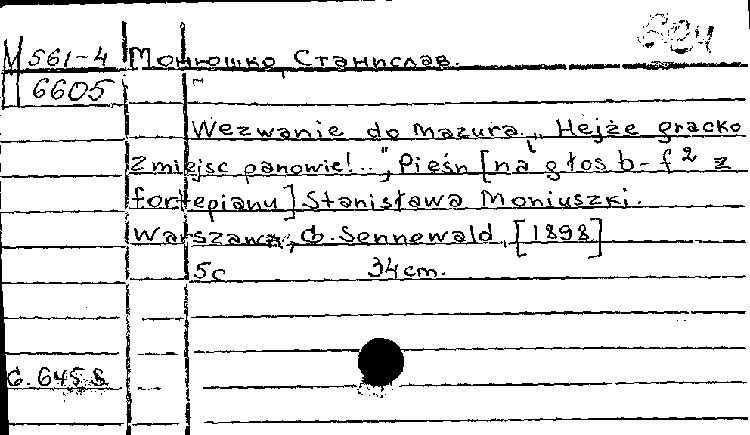 М 561-4 Монюшко, Станислав.
6605
Wezwanie do mazura „Hejże gracko
z miejsc panowie!..", Pieśń [na głos b-f² z
fortepianu] Stanisława Moniuszki.
Warszawa, G. Sennewald, [1898]
5c 34 cm.
G. 645 S.